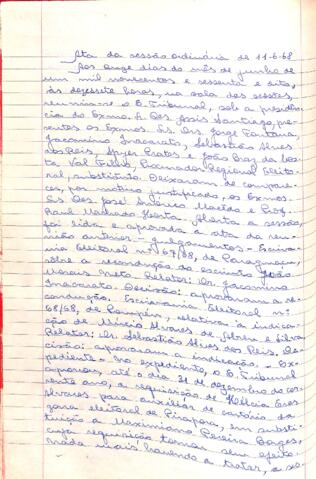 Ata da sessão ordinária de 11-6-68
Aos onze dias do mês de junho de
um mil novecentos e sessenta e oito,
às dezessete horas, na sala das sessões,
reuniu-se o E. Tribunal, sob a presidên-
cia do Exmo. S. Des. Assis Santiago, pre-
sentes os Exmos. Srs. Drs. Jorge Fontana,
Jacomino Inacarato, Sebastião Alves
dos Reis, e João Braz da Cos-
ta Val Filho, Procurador Regional Eleito-
ral, substituto. Deixaram de compare-
cer, por motivo justificado, os Exmos.
Srs. Des. José Américo Macêdo e Prof.
Raul Machado Horta. Aberta a sessão,
foi lida e aprovada a ata da reu-
nião anterior. - Julgamentos - Escriva-
nia Eleitoral nº 67/68, de Paraguaçu,
sobre a recondução do escrivão João
Morais Neto. Relator: Dr. Jacomino
Inacarato. Decisão: aprovaram a re-
condução. Escrivania Eleitoral nº
68/68, de Pompéu, relativa à indica-
ção de Alvares de e Silva.
Relator: Dr. Sebastião Alves dos Reis. De-
cisão: aprovaram a indicação. - Ex-
pediente - No expediente, o E. Tribunal
aprovou, até o dia 31 de dezembro do cor-
rente ano, a requisição de
Alvares para auxiliar de cartório da
zona eleitoral de Pirapora, em substi-
tuição a Maximiano Pereira Borges,
cuja requisição tornou sem efeito.
Nada mais havendo a tratar, a ses-